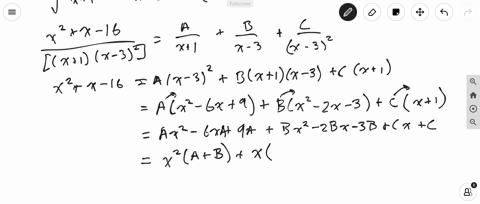 x²+x-16 / [(x+1)(x-3)²] = A/(x+1) + B/(x-3) + C/(x-3)²
x²+x-16 = A(x-3)² + B(x+1)(x-3) + C(x+1)
= A(x²-6x+9) + B(x²-2x-3) + C(x+1)
= Ax²-6xA+9A + Bx²-2Bx-3B+Cx+C
= x²(A+B) + x(